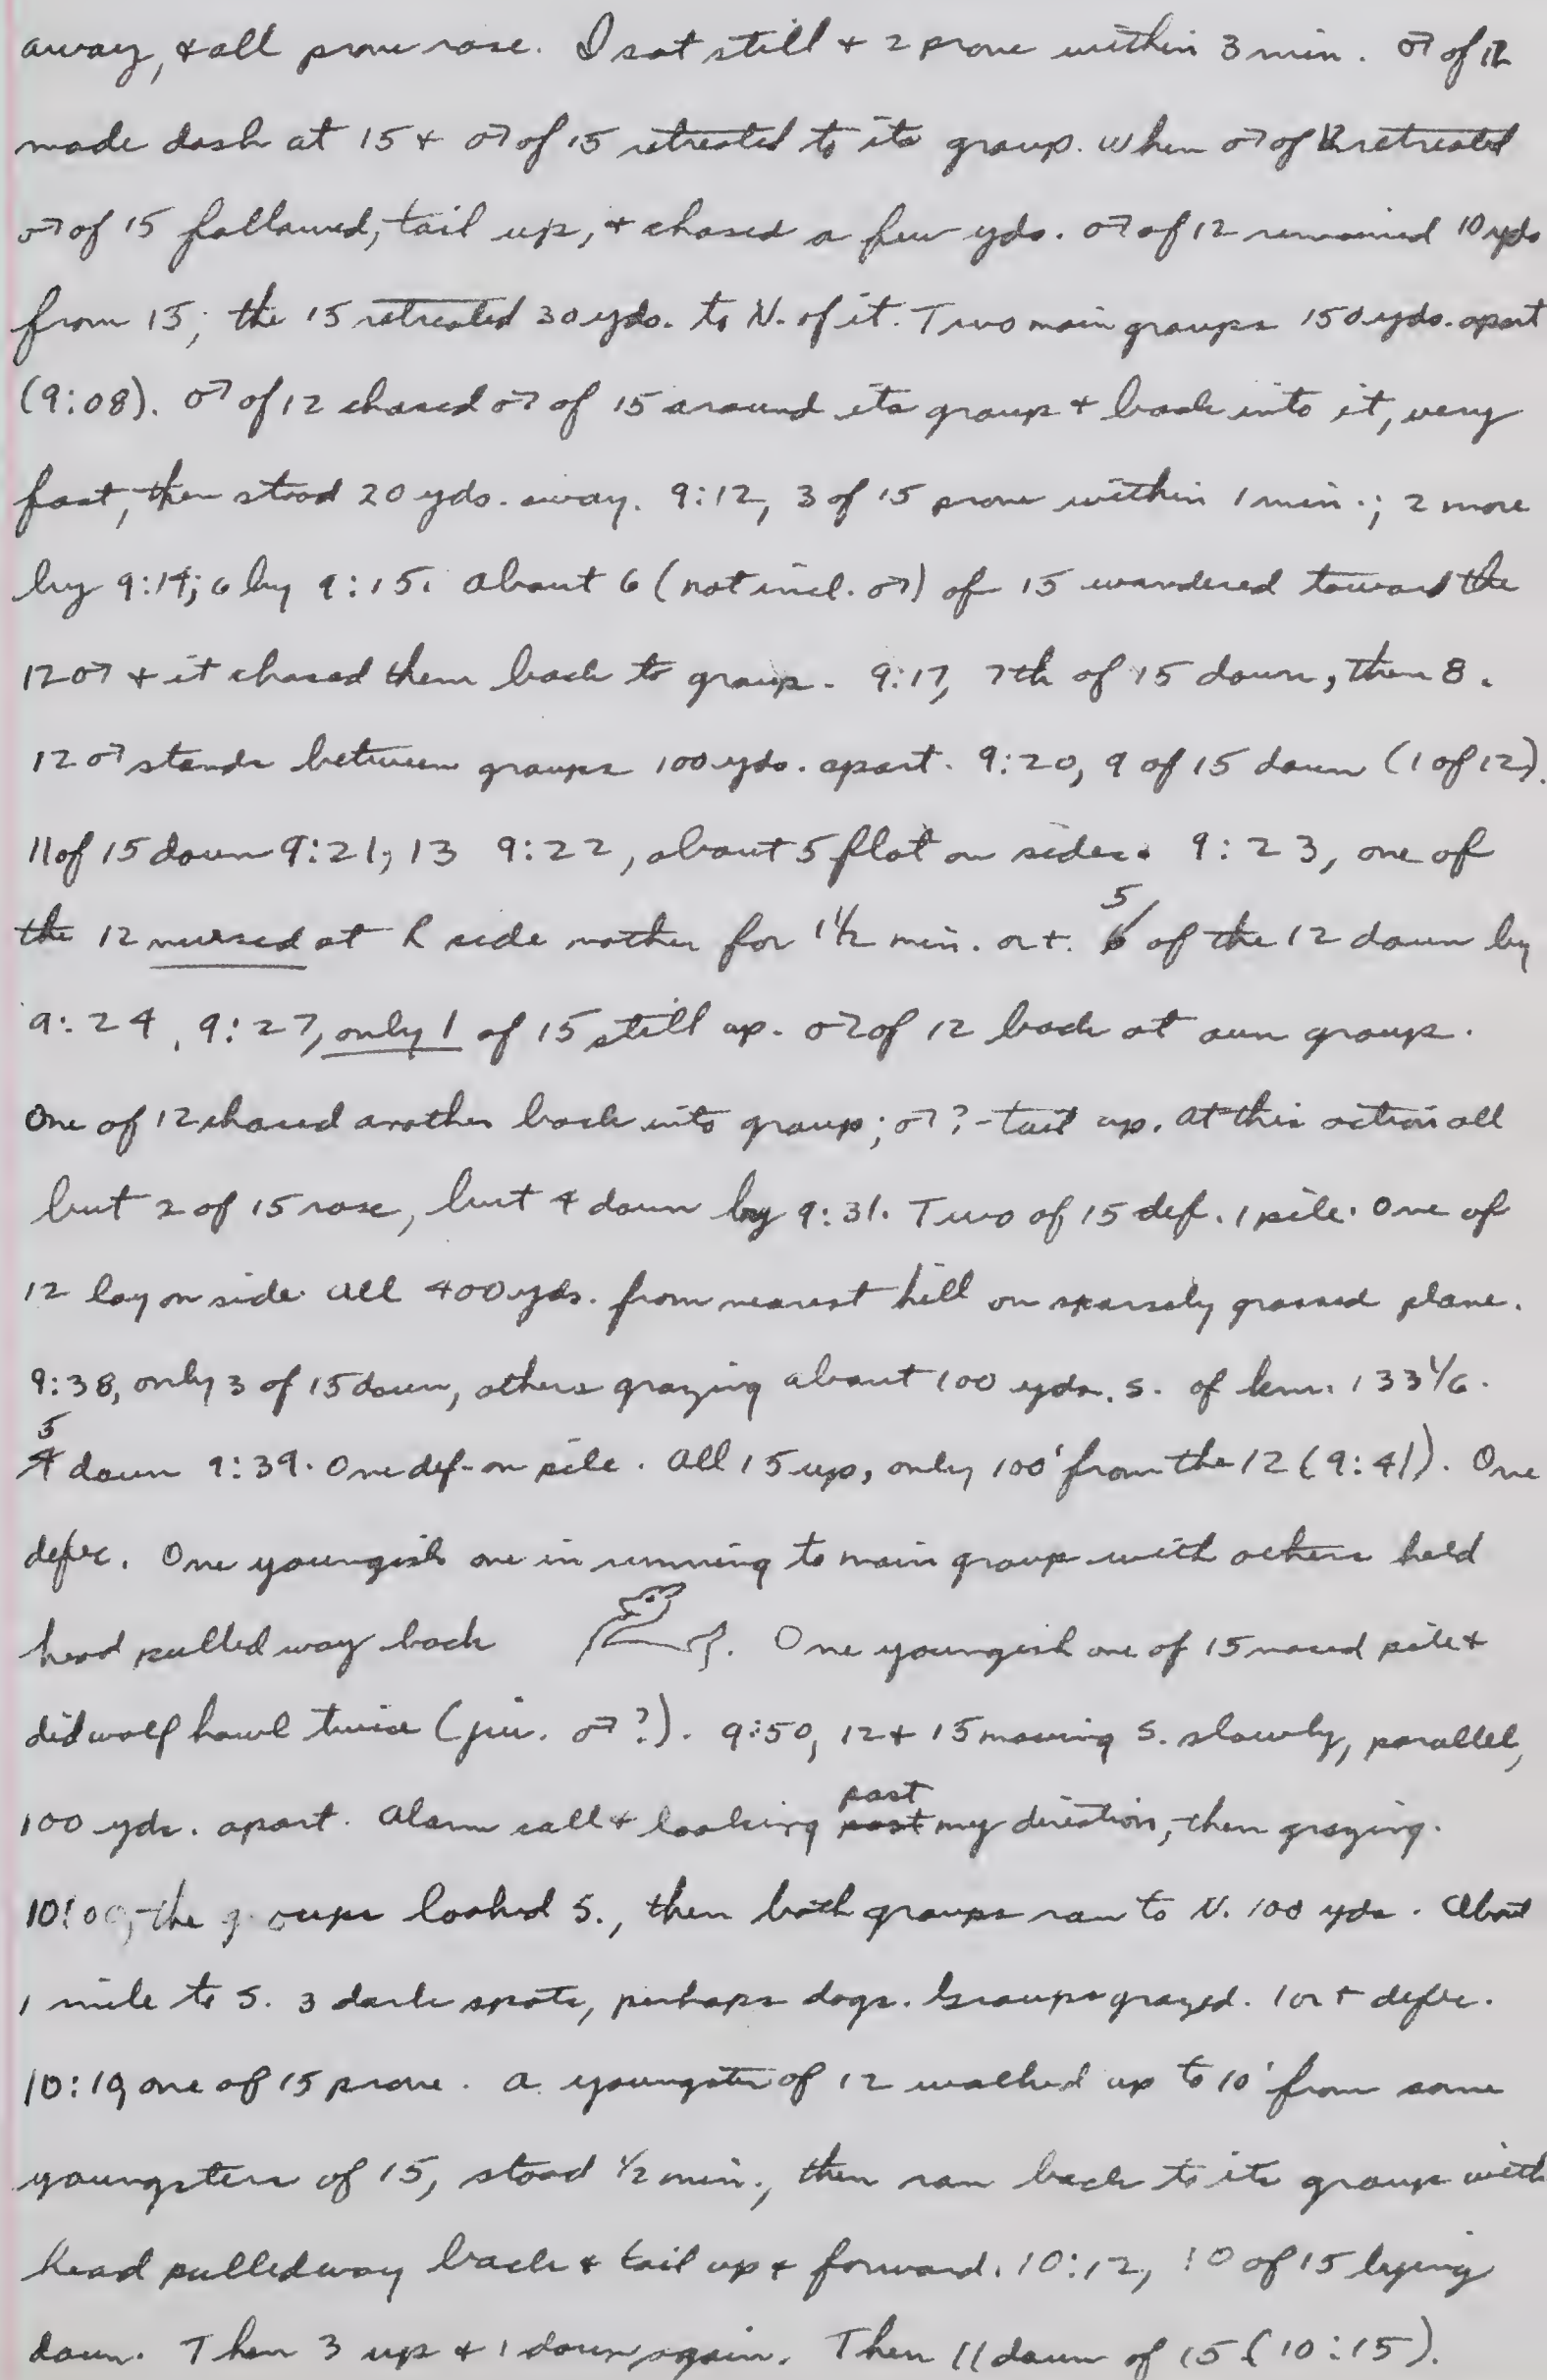 away, & all prone rose. I sat still + 2 prone within 3 min. ♂ of 12
made dash at 15 + ♂ of 15 retreated to its group. When ♂ of 12 retreated
♂ of 15 followed, tail up, + chased a few yds. ♂ of 12 remained 10 yds
from 15; the 15 retreated 30 yds. to N. of it. Two main groups 150 yds. apart
(9:08). ♂ of 12 chased ♂ of 15 around its group + back into it, very
fast, then stood 20 yds. away. 9:12, 3 of 15 prone within 1 min.; 2 more
by 9:14; 6 by 9:15. About 6 (not incl. ♂) of 15 wandered toward the
12 ♂ + it chased them back to group. 9:17, 7th of 15 down, then 8.
12 ♂ stands between groups 100 yds. apart. 9:20, 9 of 15 down (1 of 12).
11 of 15 down 9:21, 13 9:22, about 5 flat on sides. 9:23, one of
the 12 nursed at R side mother for 1 1/2 min. or +. 5 of the 12 down by
9:24, 9:27, only 1 of 15 still up. ♂ of 12 back at own group.
One of 12 chased another back into group; ♂? - tail up. At this action all
but 2 of 15 rose, but 4 down by 9:31. Two of 15 def. 1 pile. One of
12 lay on side. All 400 yds. from nearest hill on sparsely grassed plane.
9:38, only 3 of 15 down, others grazing about 100 yds. S. of km. 133 1/6.
5 down 9:39. One def. on pile. All 15 up, only 100' from the 12 (9:41). One
defec. One youngish one in running to main group with others held
head pulled way back. One youngish one of 15 nosed pile +
did wolf howl twice (juv. ♂?). 9:50, 12 + 15 moving S. slowly, parallel,
100 yds. apart. Alarm call + looking past my direction, then grazing.
10:00, the groups looked S., then both groups ran to N. 100 yds. About
1 mile to S. 3 dark spots, perhaps dogs. Groups grazed. 1 or + defec.
10:10 one of 15 prone. A youngster of 12 walked up to 10' from some
youngsters of 15, stood 1/2 min., then ran back to its group with
head pulled way back + tail up + forward. 10:12, 10 of 15 lying
down. Then 3 up + 1 down again. Then 11 down of 15 (10:15).